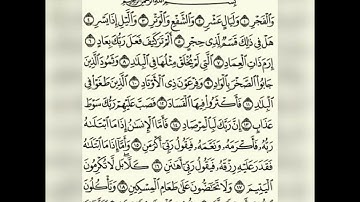 وَٱلۡفَجۡرِ ١ وَلَيَالٍ عَشۡرٖ ٢ وَٱلشَّفۡعِ وَٱلۡوَتۡرِ ٣ وَٱلَّيۡلِ إِذَا يَسۡرِ ٤
هَلۡ فِي ذَٰلِكَ قَسَمٞ لِّذِي حِجۡرٍ ٥ أَلَمۡ تَرَ كَيۡفَ فَعَلَ رَبُّكَ بِعَادٍ ٦
إِرَمَ ذَاتِ ٱلۡعِمَادِ ٧ ٱلَّتِي لَمۡ يُخۡلَقۡ مِثۡلُهَا فِي ٱلۡبِلَٰدِ ٨ وَثَمُودَ ٱلَّذِينَ
جَابُواْ ٱلصَّخۡرَ بِٱلۡوَادِ ٩ وَفِرۡعَوۡنَ ذِي ٱلۡأَوۡتَادِ ١٠ ٱلَّذِينَ طَغَوۡاْ فِي
ٱلۡبِلَٰدِ ١١ فَأَكۡثَرُواْ فِيهَا ٱلۡفَسَادَ ١٢ فَصَبَّ عَلَيۡهِمۡ رَبُّكَ سَوۡطَ
عَذَابٍ ١٣ إِنَّ رَبَّكَ لَبِٱلۡمِرۡصَادِ ١٤ فَأَمَّا ٱلۡإِنسَٰنُ إِذَا مَا ٱبۡتَلَىٰهُ
رَبُّهُۥ فَأَكۡرَمَهُۥ وَنَعَّمَهُۥ فَيَقُولُ رَبِّيٓ أَكۡرَمَنِ ١٥ وَأَمَّآ إِذَا مَا ٱبۡتَلَىٰهُ
فَقَدَرَ عَلَيۡهِ رِزۡقَهُۥ فَيَقُولُ رَبِّيٓ أَهَٰنَنِ ١٦ كَلَّاۖ بَل لَّا تُكۡرِمُونَ
ٱلۡيَتِيمَ ١٧ وَلَا تَحَٰٓضُّونَ عَلَىٰ طَعَامِ ٱلۡمِسۡكِينِ ١٨ وَتَأۡكُلُونَ